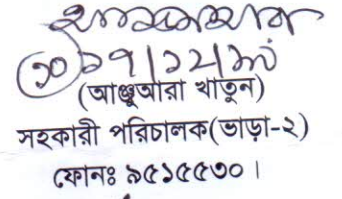 ১৭/১২/
(আঞ্জুআরা খাতুন)
সহকারী পরিচালক(ভাড়া-২)
ফোনঃ ৯৫১৫৫৩০।